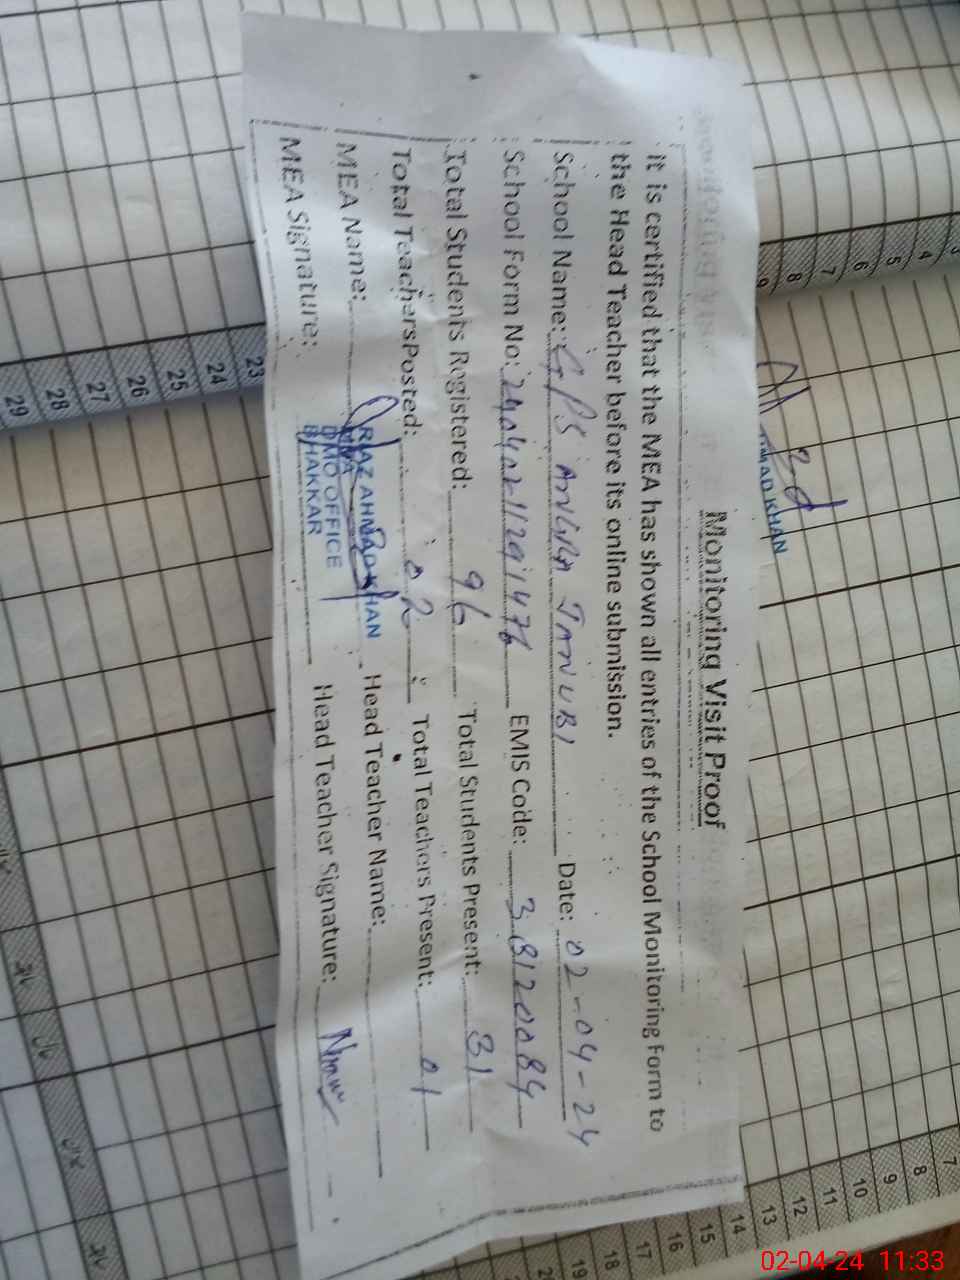 Monitoring Visit Proof
it is certified that the MEA has shown all entries of the School Monitoring Form to
the Head Teacher before its online submission.
School Name: GPS ANGRA JANUBI Date: 02-04-24
School Form No: EMIS Code: 38120084
Total Students Registered: 96 Total Students Present: 31
Total Teachers Posted: 02 Total Teachers Present: 01
MEA Name: Head Teacher Name:
MEA Signature: Head Teacher Signature:
RIAZ AHMAD KHAN
MEA
DMO OFFICE
BHAKKAR
AHMAD KHAN
3 4 5 6 7 8 9
23 24 25 26 27 28 29
7 8 9 10 11 12 13 14 15 16 17 18 19
02-04-24 11:33